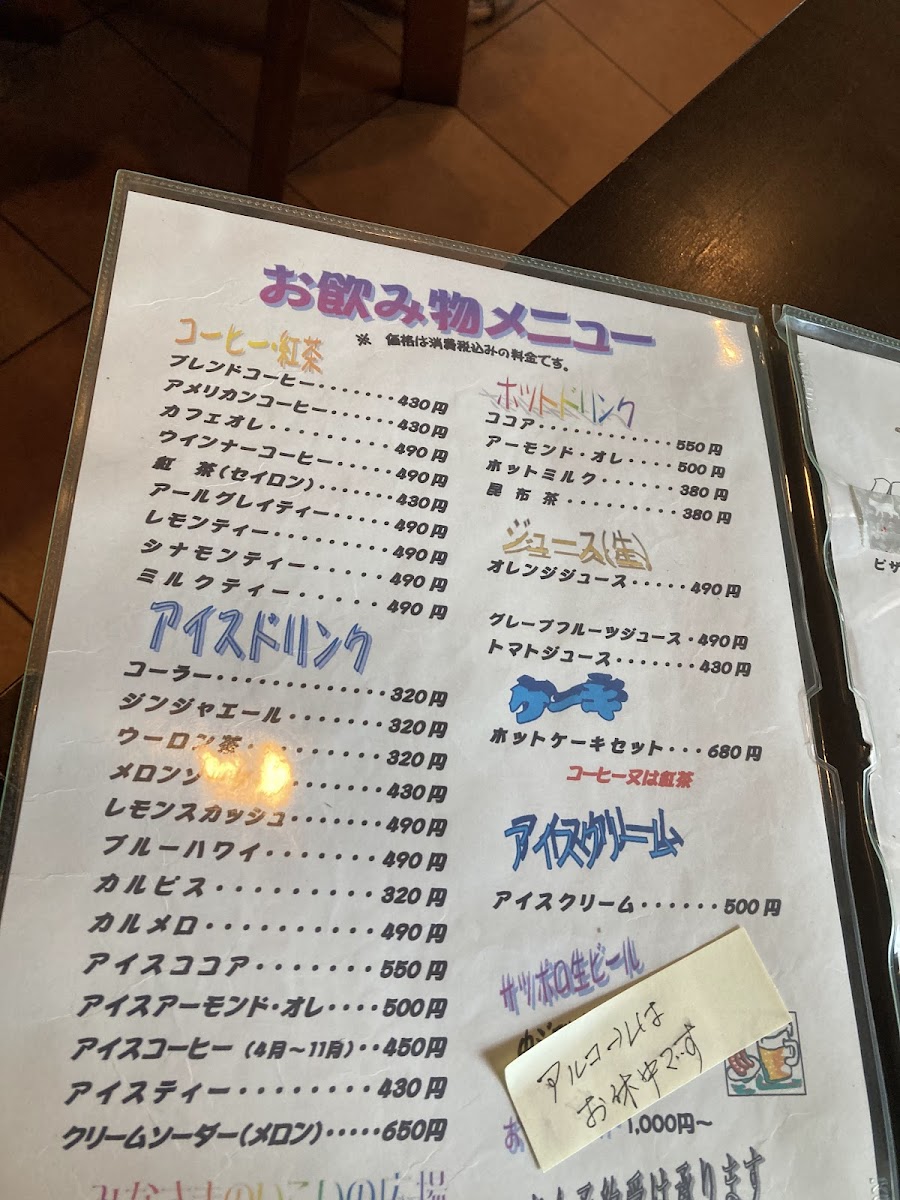 お飲み物メニュー
※ 価格は消費税込みの料金です。
コーヒー・紅茶
ブレンドコーヒー・・・・・・・430円
アメリカンコーヒー・・・・・・430円
カフェオレ・・・・・・・・・・490円
ウインナーコーヒー・・・・・490円
紅 茶(セイロン)・・・・・・・430円
アールグレイティー・・・・・490円
レモンティー・・・・・・・・・490円
シナモンティー・・・・・・490円
ミルクティー・・・・・490円
アイスドリンク
コーラー・・・・・・・・・・・・320円
ジンジャエール・・・・・・・320円
ウーロン茶・・・・・・・・・320円
メロンソ・・・・・・430円
レモンスカッシュ・・・・・・・490円
ブルーハワイ・・・・・・・490円
カルピス・・・・・・・・・320円
カルメロ・・・・・・・・・・490円
アイスココア・・・・・・・550円
アイスアーモンド・オレ・・・・500円
アイスコーヒー(4月~11月)・・450円
アイスティー・・・・・・・・430円
クリームソーダー(メロン)・・・・・650円
ホットドリンク
ココア・・・・・・・・・・・・550円
アーモンド・オレ・・・・・500円
ホットミルク・・・・・・・380円
昆布茶・・・・・・・・・380円
ジュース(生)
オレンジジュース・・・・・・490円
グレープフルーツジュース・490円
トマトジュース・・・・・・・430円
ケーキ
ホットケーキセット・・・680円
コーヒー又は紅茶
アイスクリーム
アイスクリーム・・・・・・500円
サッポロ生ビール
アルコールは
お休中です
お
1,000円~
承ります
ピザ